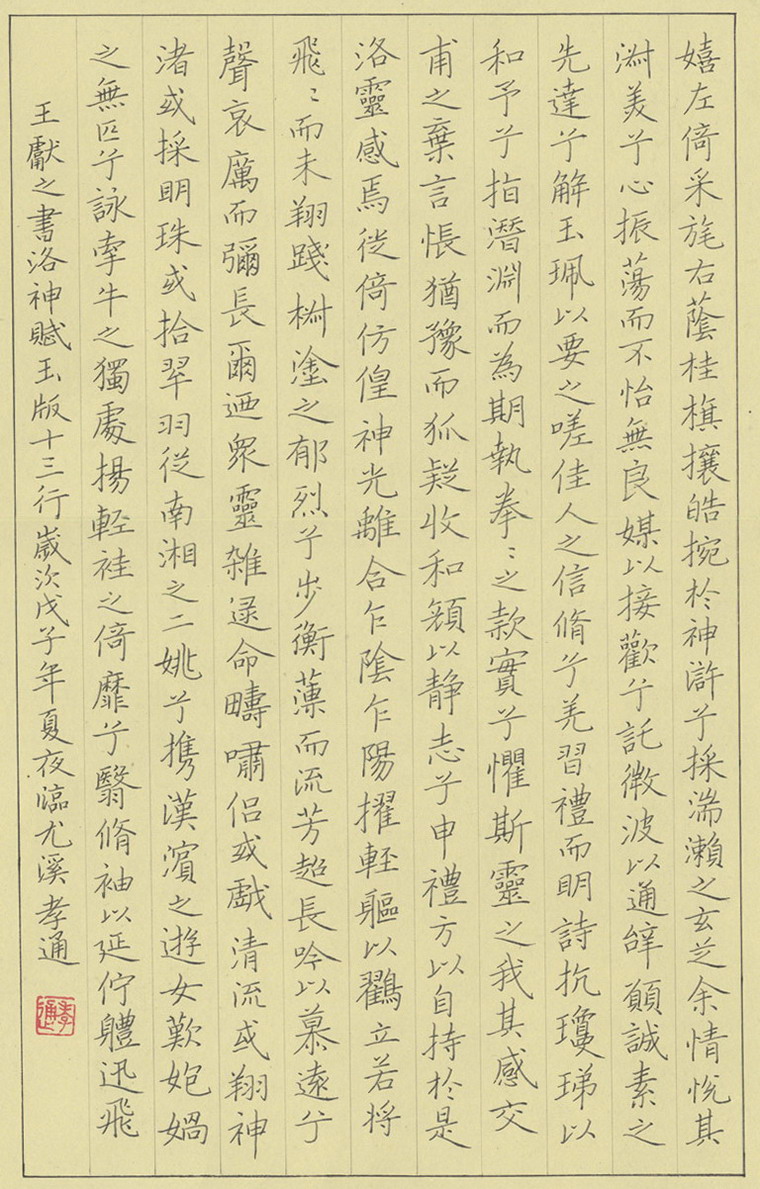 嬉左倚采旄右蔭桂旗攘皓捥於神滸兮採湍瀨之玄芝余情悅其
淑美兮心振蕩而不怡無良媒以接歡兮託微波以通辝願誠素之
先達兮解玉珮以要之嗟佳人之信脩兮羌習禮而明詩抗瓊珶以
和予兮指潛淵而為期執拳〻之款實兮懼斯靈之我其感交
甫之棄言悵猶豫而狐疑收和顏以静志兮申禮方以自持於是
洛靈感焉徙倚仿偟神光離合乍陰乍陽擢輕軀以鶴立若將
飛〻而未翔踐椒塗之郁烈兮步衡薄而流芳超長吟以慕遠兮
聲哀厲而彌長爾迺衆靈雜遝命疇嘯侣或戲清流或翔神
渚或採明珠或拾翠羽從南湘之二姚兮攜漢濱之遊女歎匏媧
之無匹兮詠牽牛之獨處揚輕袿之倚靡兮翳脩袖以延佇軆迅飛
王獻之書洛神賦玉版十三行歲次戊子年夏夜臨尤溪孝通
孝通